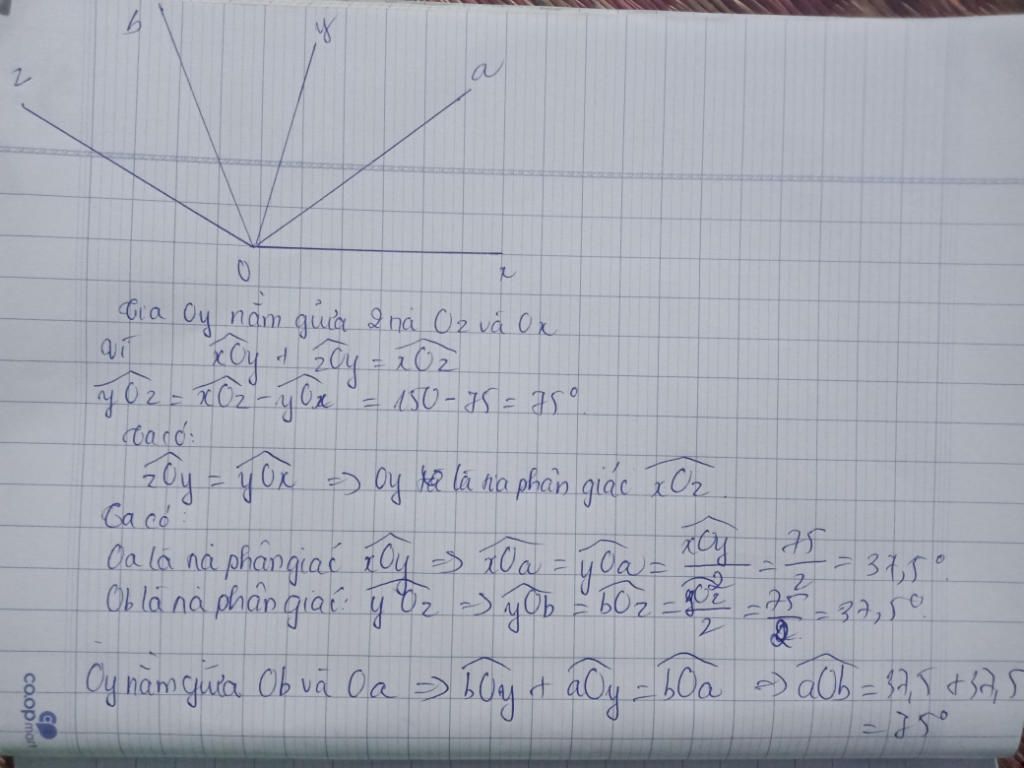 b
y
a
z
O
x
Tia Oy nằm giữa 2 tia Oz và Ox
Vì xOy + zOy = xOz
yOz = xOz - yOx = 150 - 75 = 75°.
Ta có:
zOy = yOx => Oy là tia phân giác xOz.
Ta có:
Oa là tia phân giác xOy => xOa = yOa = xOy/2 = 75/2 = 37,5°.
Ob là tia phân giác yOz => yOb = bOz = yOz/2 = 75/2 = 37,5°.
Oy nằm giữa Ob và Oa => bOy + aOy = bOa => aOb = 37,5 + 37,5
= 75°
co.opmart